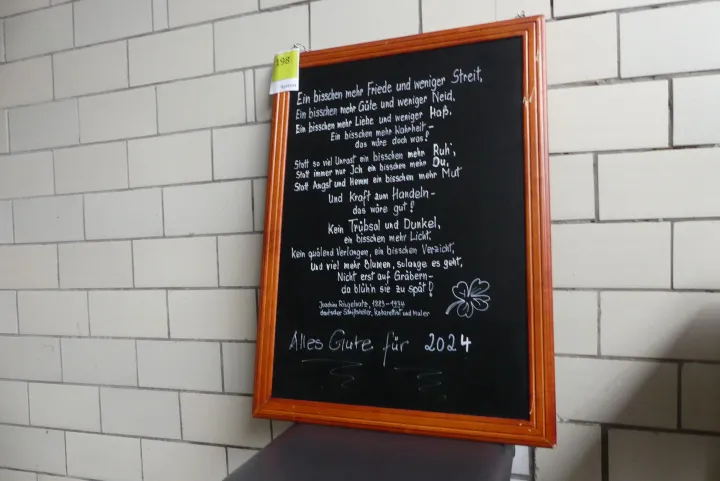 198
Ein bisschen mehr Friede und weniger Streit,
Ein bisschen mehr Güte und weniger Neid.
Ein bisschen mehr Liebe und weniger Haß.
Ein bisschen mehr Wahrheit,-
das wäre doch was!
Statt so viel Unrast ein bisschen mehr Ruh',
Statt immer nur Ich ein bisschen mehr Du,
Statt Angst und Hemm ein bisschen mehr Mut
Und Kraft zum Handeln-
das wäre gut!
Kein Trübsal und Dunkel,
ein bisschen mehr Licht.
Kein quälend Verlangen, ein bisschen Verzicht,
und viel mehr Blumen, solange es geht,
Nicht erst auf Gräbern-
da blüh'n sie zu spät!
Joachim Ringelnatz, 1883-1934
deutscher Schriftsteller, Kabarettist und Maler
Alles Gute für 2024